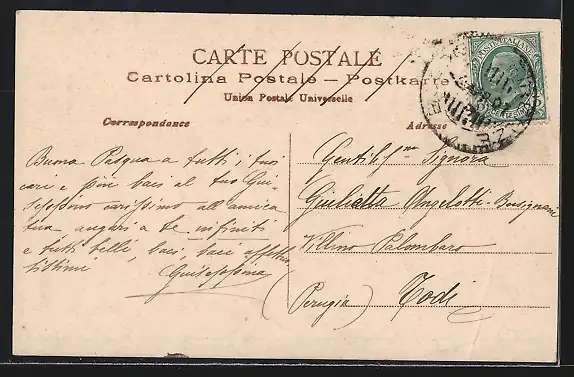 CARTE POSTALE
Cartolina Postale – Postkarte
Union Postale Universelle
Correspondance
Adresse
Buona Pasqua a tutti, i tuoi
cari e più baci al tuo
carissimo all'amica
tua, auguri a te infiniti
e tutti belli, baci, baci affettuo
sissimi
Giuseppina
Gentil.ma Signora
Giulietta Angelotti-
Villino Palombaro
(Perugia) Todi